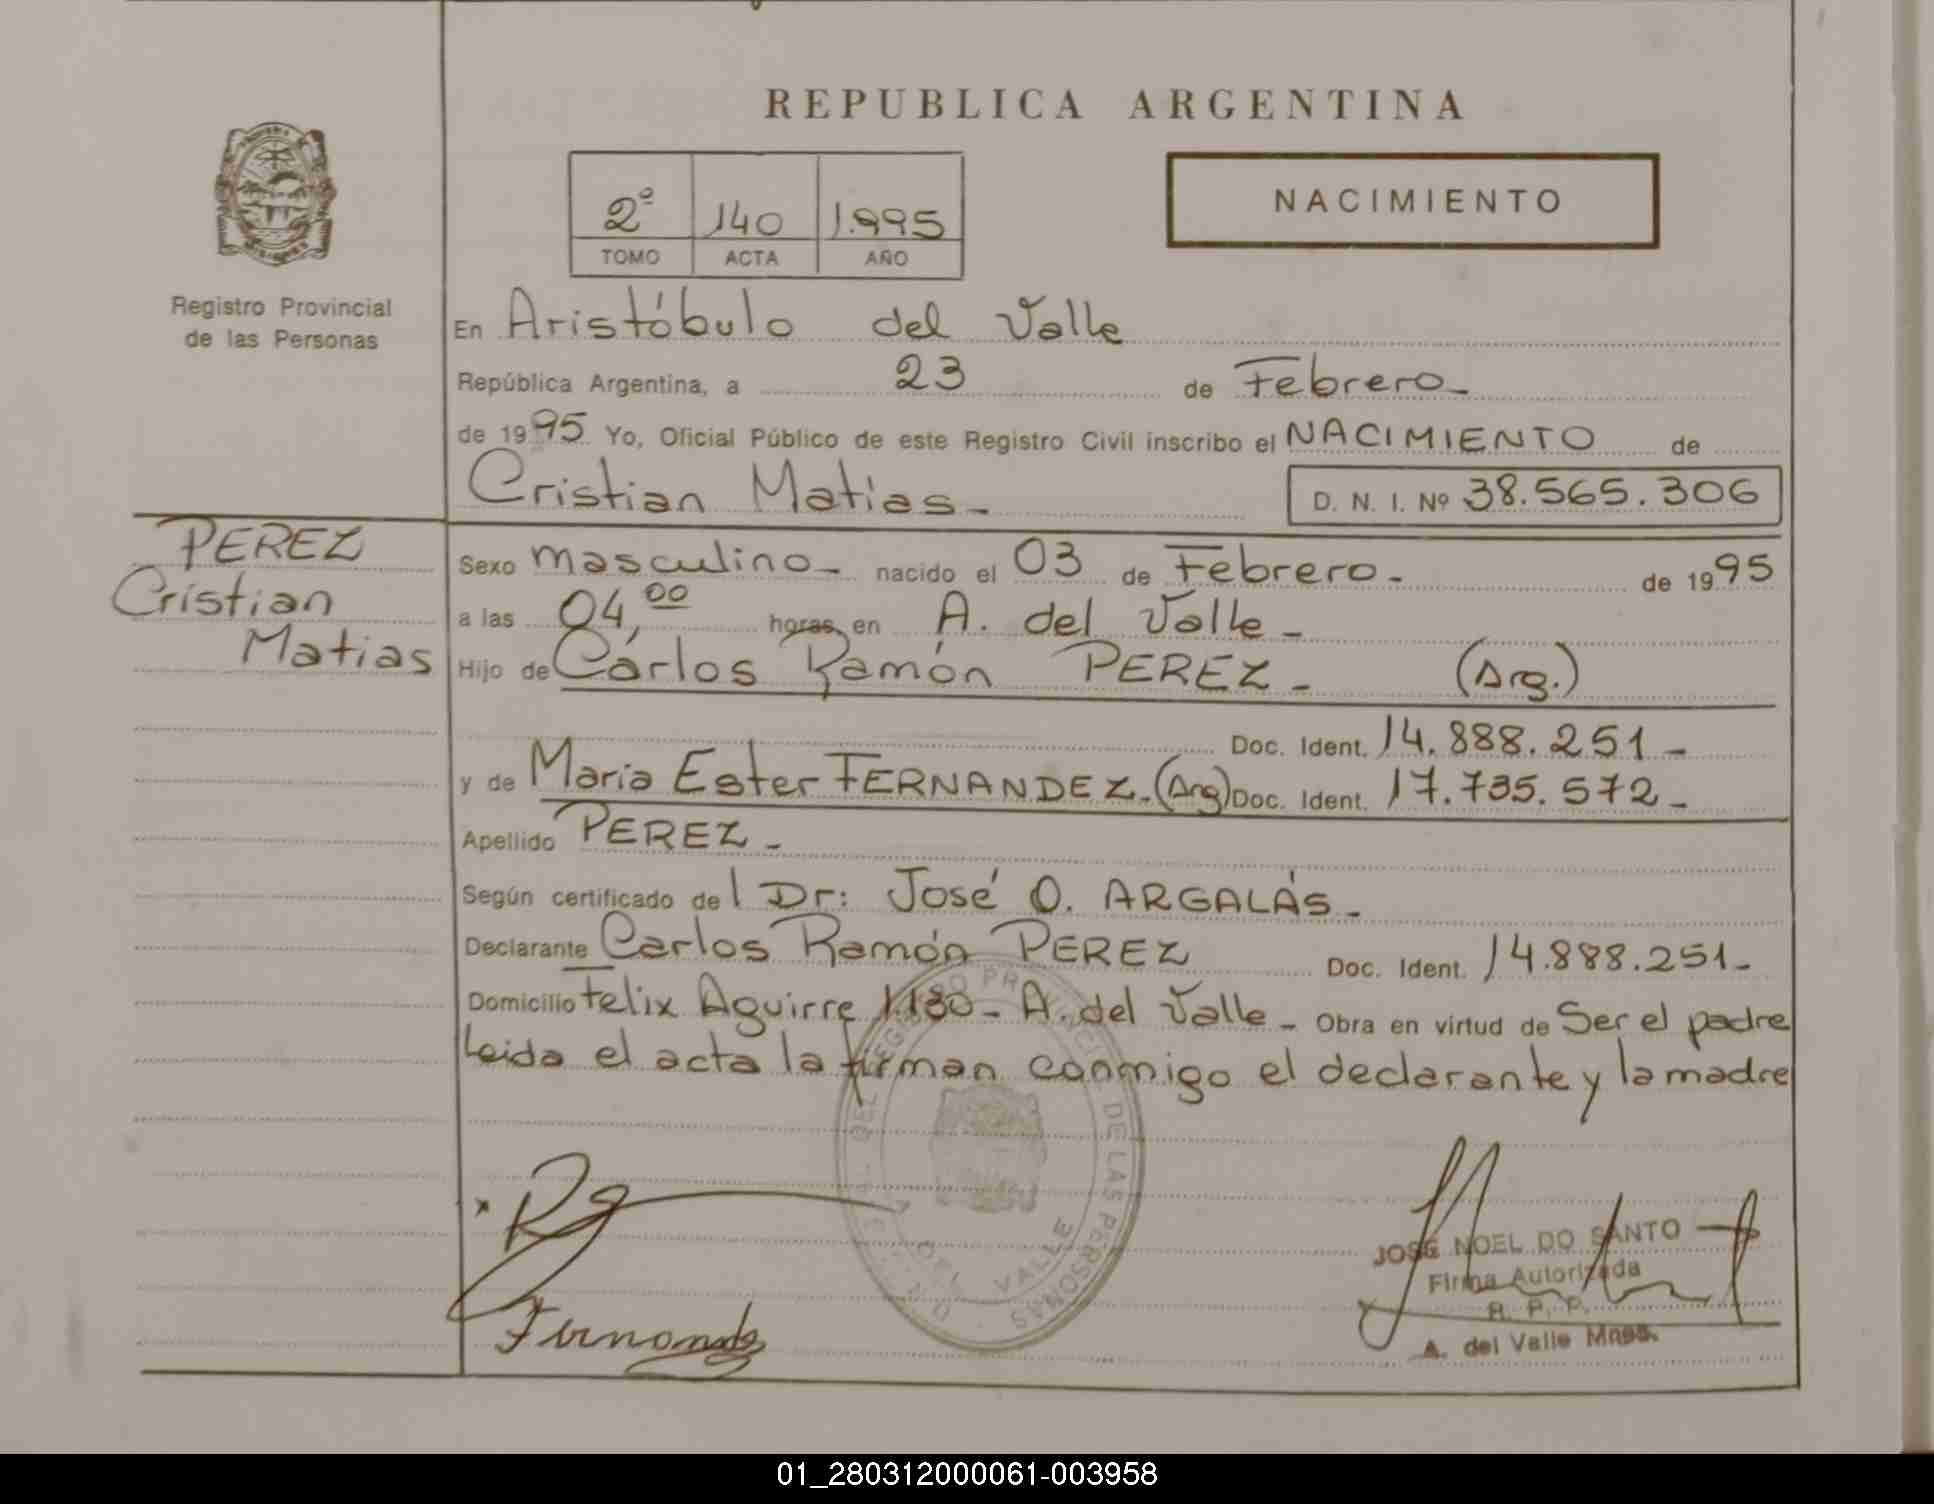 REPUBLICA ARGENTINA
2º 140 1.995
TOMO ACTA AÑO
NACIMIENTO
Registro Provincial
de las Personas
En Aristóbulo del Valle
República Argentina, a 23 de Febrero-
de 1995 Yo, Oficial Público de este Registro Civil inscribo el NACIMIENTO de
Cristian Matias- D. N. I. Nº 38.565.306
PEREZ
Cristian
Matias
Sexo masculino- nacido el 03 de Febrero- de 1995
a las 04,00 horas, en A. del Valle-
Hijo de Carlos Ramón PEREZ- (Arg.)
Doc. Ident. 14.888.251-
y de Maria Ester FERNANDEZ-(Arg) Doc. Ident. 17.735.572-
Apellido PEREZ-
Según certificado del Dr: José O. ARGALÁS-
Declarante Carlos Ramón PEREZ Doc. Ident. 14.888.251-
Domicilio Felix Aguirre 1180- A. del Valle- Obra en virtud de Ser el padre
Leida el acta la firman conmigo el declarante y la madre
DEL REGISTRO PROVINCIAL DE LAS PERSONAS
DEL VALLE
Fernandez
JOSE NOEL DO SANTO
Firma Autorizada
R. P. P.
A. del Valle Mnes.
01_280312000061-003958